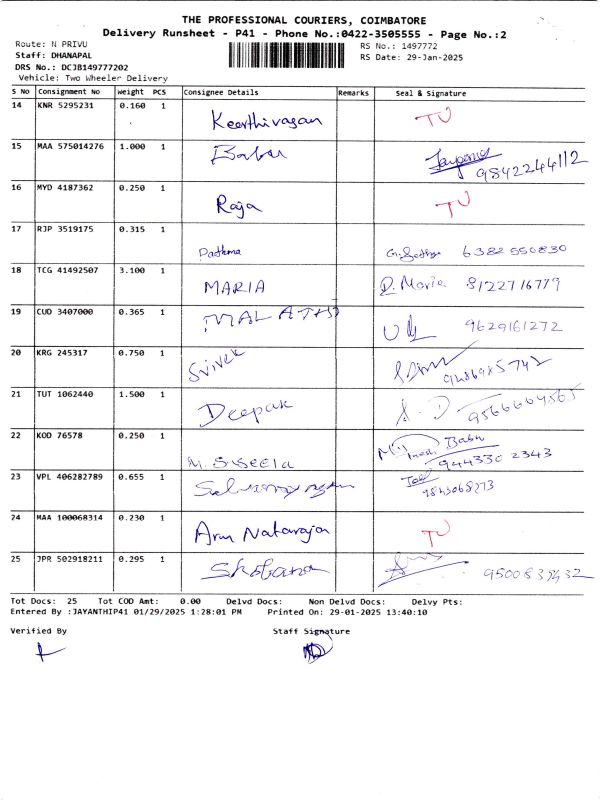 THE PROFESSIONAL COURIERS, COIMBATORE
Delivery Runsheet - P41 - Phone No.:0422-3505555 - Page No.:2
Route: N PRIVU
RS No.: 1497772
Staff: DHANAPAL
RS Date: 29-Jan-2025
DRS No.: DCJB149777202
Vehicle: Two Wheeler Delivery
S No Consignment No Weight PCS Consignee Details Remarks Seal & Signature
14 KNR 5295231 0.160 1 Keerthivasan TU
15 MAA 575014276 1.000 1 Babu 9842244112
16 MYD 4187362 0.250 1 Raja TU
17 RJP 3519175 0.315 1 Padma 6382550830
18 TCG 41492507 3.100 1 MARIA D. Maria 8122716779
19 CUD 3407000 0.365 1 MALATHI 9629161272
20 KRG 245317 0.750 1 Srivek
21 TUT 1062440 1.500 1 Deepak
22 KOD 76578 0.250 1 M. Suseela Babu 944330 2343
23 VPL 406282789 0.655 1 9843068273
24 MAA 100068314 0.230 1 Arun Nataraja TU
25 JPR 502918211 0.295 1 Shobana
Tot Docs: 25 Tot COD Amt: 0.00 Delvd Docs: Non Delvd Docs: Delvy Pts:
Entered By :JAYANTHIP41 01/29/2025 1:28:01 PM Printed On: 29-01-2025 13:40:10
Verified By Staff Signature